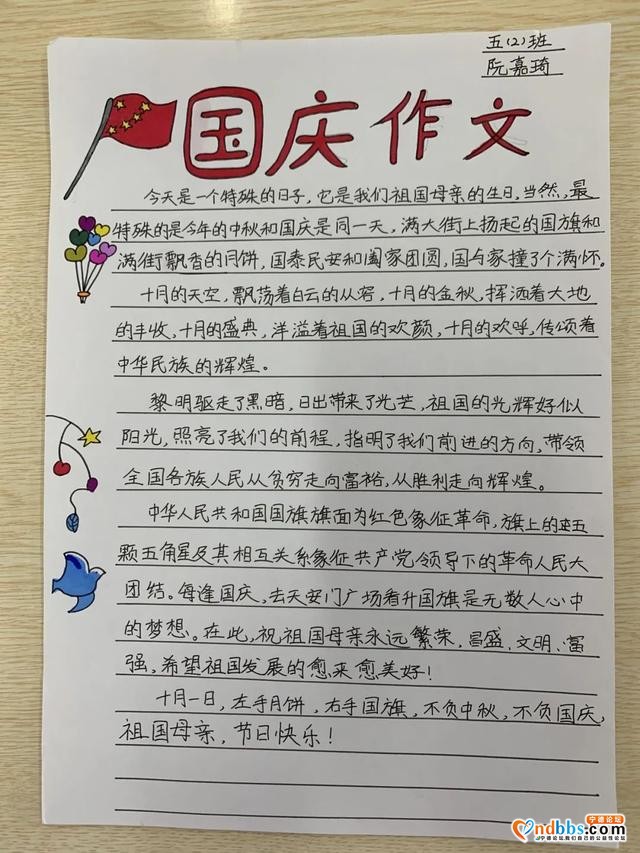 五(2)班
阮嘉琦
国庆作文
今天是一个特殊的日子，它是我们祖国母亲的生日，当然，最
特殊的是今年的中秋和国庆是同一天，满大街上扬起的国旗和
满街飘香的月饼，国泰民安和阖家团圆，国与家撞了个满怀。
十月的天空，飘荡着白云的从容，十月的金秋，挥洒着大地
的丰收，十月的盛典，洋溢着祖国的欢颜，十月的欢呼，传颂着
中华民族的辉煌。
黎明驱走了黑暗，日出带来了光芒，祖国的光辉好似
阳光，照亮了我们的前程，指明了我们前进的方向，带领
全国各族人民从贫穷走向富裕，从胜利走向辉煌。
中华人民共和国国旗旗面为红色象征革命，旗上的五
颗五角星及其相互关系象征共产党领导下的革命人民大
团结。每逢国庆，去天安门广场看升国旗是无数人心中
的梦想。在此，祝祖国母亲永远繁荣、昌盛、文明、富
强，希望祖国发展的愈来愈美好！
十月一日，左手月饼，右手国旗，不负中秋，不负国庆，
祖国母亲，节日快乐！
宁德论坛
ndbbs.com
宁德论坛